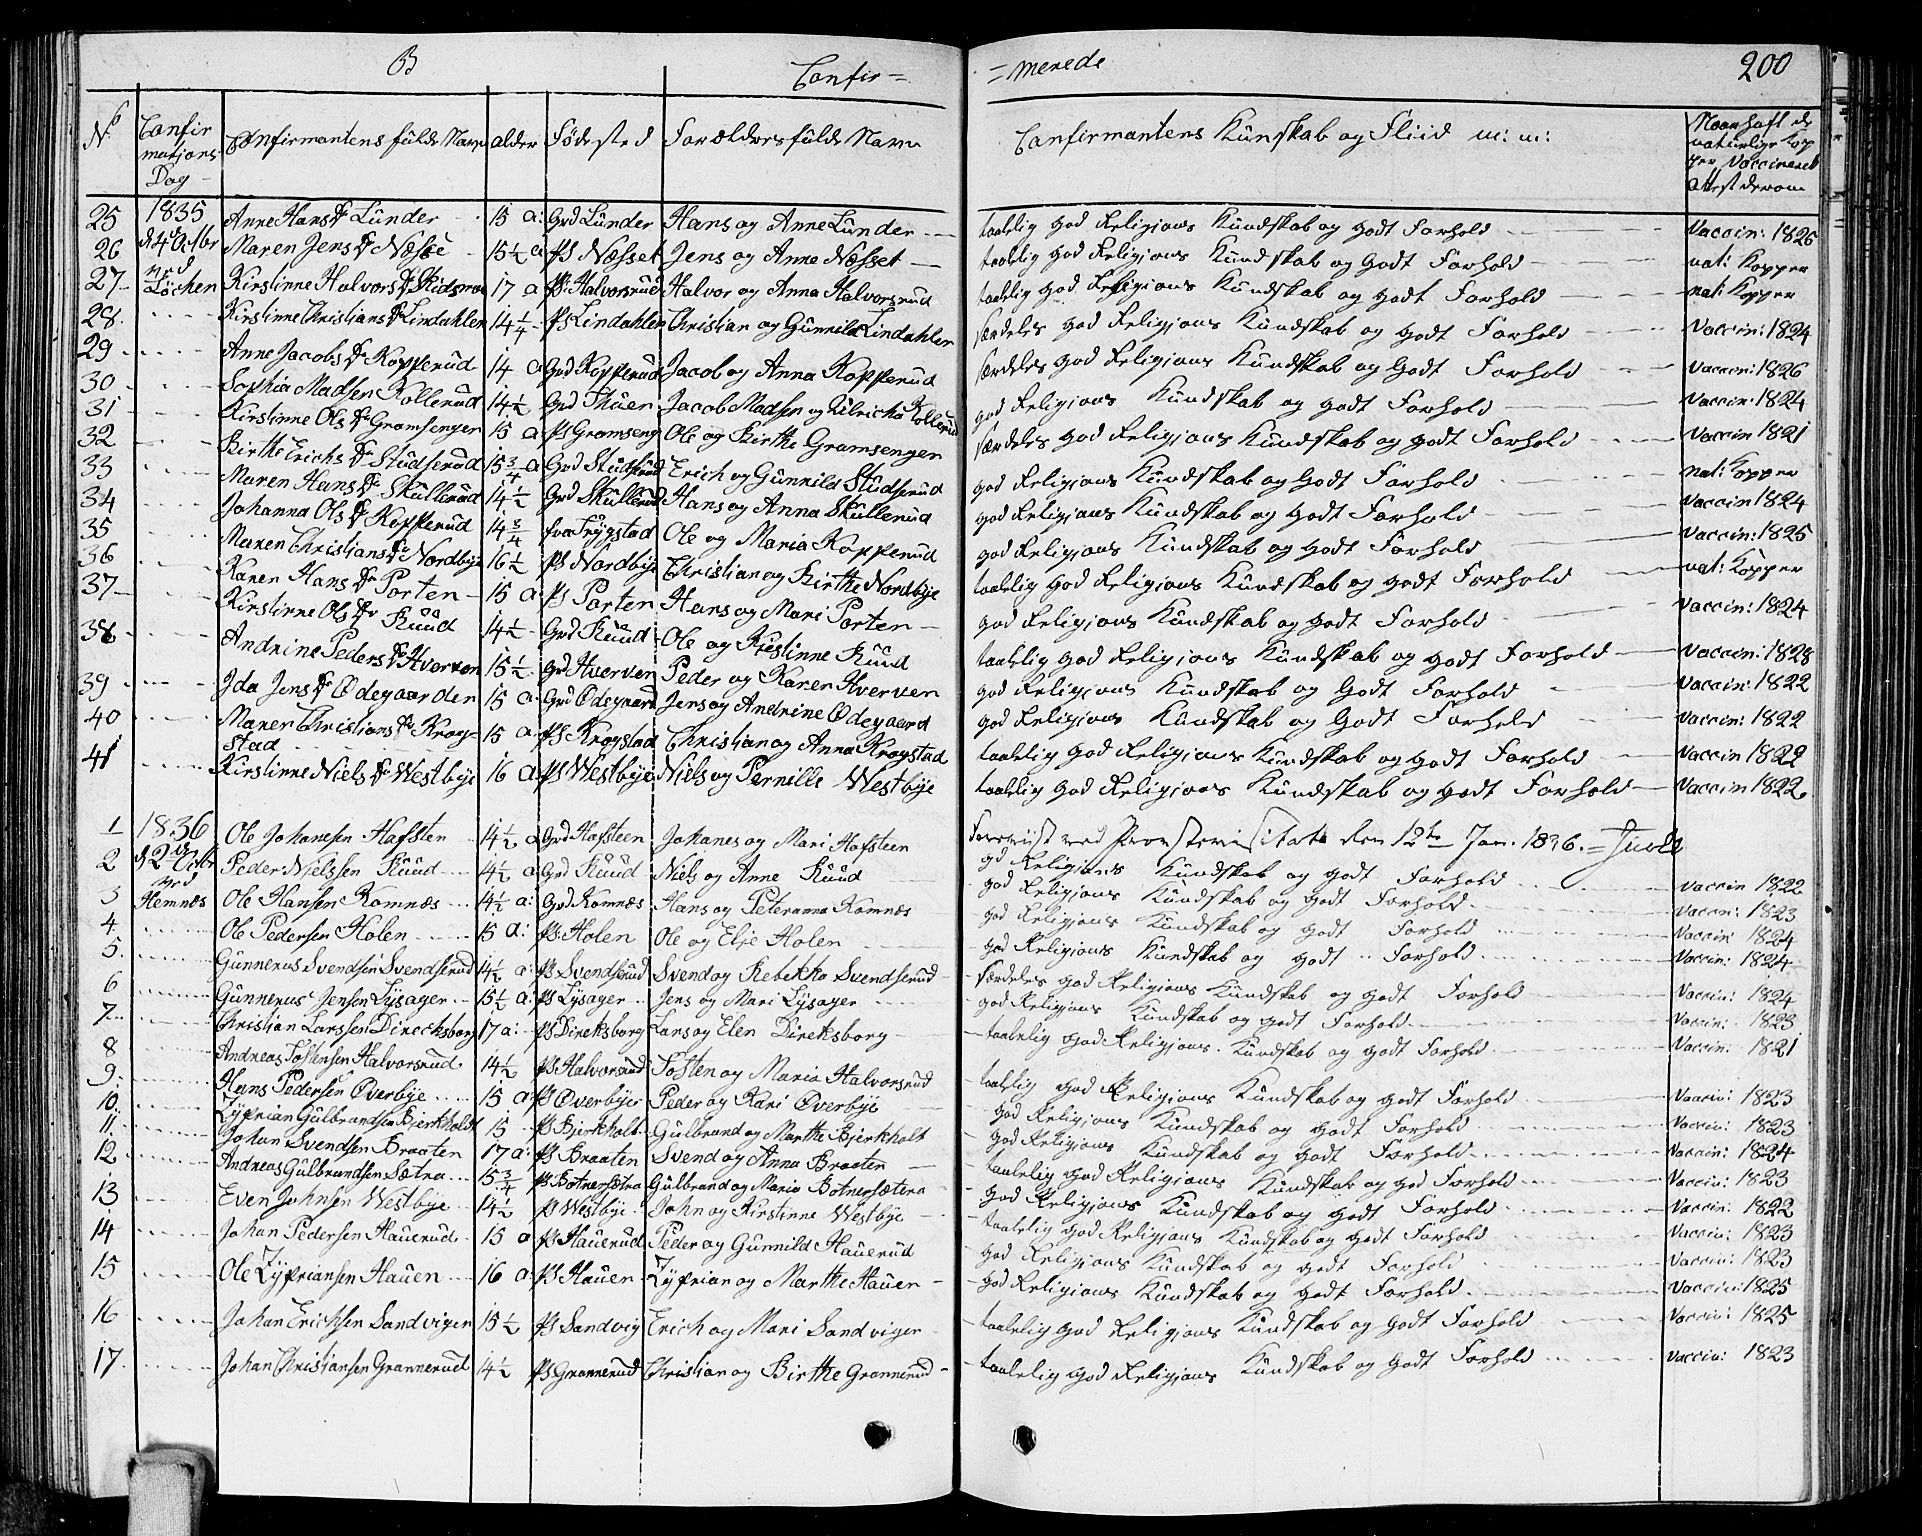 B Confir= =merede 200
No Confirmasjons Dag Confirmantens fulde Navn alder Fødested Forældres fulde Navn Confirmantens Kundskab og Fliid m: m: Naar haft de naturlige Kopper Vaccineret Attest derom
25 1835 Anne Hans Dr Lunder 15 a: Grd Lunder Hans og Anne Lunder taalelig god Religions Kundskab og godt Forhold Vaccin: 1826
26 d 4 Octbr Maren Jens Dr Næsse 15½ a Ps Næsset Jens og Anne Næsset taalelig god Religions Kundskab og Godt Forhold nat: Kopper
27 ved Løchen Kirstinne Halvors Dr 17 a Ps: Halvorsrud Halvor og Anna Halvorsrud taalelig god Religions Kundskab og godt Forhold nat: Kopper
28 Kirstinne Christians Dr Lindahlen 14¼ Ps Lindahlen Christian og Gunnild Lindahlen særdeles god Religions Kundskab og godt Forhold Vaccin: 1824
29 Anne Jacobs Dr Kopperud 14 a Grd Kopperud Jacob og Anna Kopperud særdeles god Religions Kundskab og Godt Forhold Vaccin: 1826
30 Sophia Madsen Kollerud 14½ Grd Thuen Jacob Madsen og Ulricha Kollerud god Religions Kundskab og godt Forhold Vaccin: 1824
31 Kirstinne Ols Dr Gramsenger 15 a Ps Gramseng Ole og Birthe Gramsengen særdeles god Religions Kundskab og godt Forhold Vaccin 1821
32 Birthe Erichs Dr Studserud 15¾ a Grd Studserud Erich og Gunnild Studserud god Religions Kundskab og Godt Forhold nat: Kopper
33 Maren Hans Dr Skullerud 14½ Grd Skullerud Hans og Anna Skullerud god Religions Kundskab og Godt Forhold Vaccin 1824
34 Johanna Ols Dr Kopperud 14¾ fra Trygstad Ole og Maria Kopperud god Religions Kundskab og Godt Forhold Vaccin: 1825
35 Maren Christians Dr Nordbye 16½ Ps Nordbye Christian og Birthe Nordbye taalelig god Religions Kundskab og godt Forhold nat: Kopper
36 Karen Hans Dr Porten 15 a Ps Porten Hans og Mari Porten god Religions Kundskab og godt Forhold Vaccin: 1824
37 Kirstinne Ols Dr Ruud 14½ Grd Ruud Ole og Kirstinne Ruud taalelig god Religions Kundskab og godt Forhold Vaccin: 1828
38 Andrine Peders Dr Hverven 15½ Grd Hverven Peder og Karen Hverven god Religions Kundskab og Godt Forhold Vaccin: 1822
39 Ida Jens Dr Ødegaarden 15 a Grd Ødegaard Jens og Andrine Ødegaard god Religions Kundskab og Godt Forhold Vaccin: 1822
40 Maren Christians Dr Krogstad 15 a Ps Krogstad Christian og Anna Krogstad taalelig god Religions Kundskab og godt Forhold Vaccin 1822
41 Kirstinne Niels Dr Westbye 16 a Ps Westbye Niels og Pernille Westbye taalelig god Religions Kundskab og godt Forhold Vaccin 1822
Foreviist ved Provstevisitats den 12te Jan. 1836. = Juell
1 1836 Ole Johansen Hafsten 14½ a Grd Hafsteen Johanes og Mari Hafsteen god Religions Kundskab og godt Forhold Vaccin 1822
2 d 2den Octbr Peder Nielssen Ruud 14½ a Grd Ruud Niels og Anne Ruud god Religions Kundskab og godt Forhold Vaccin: 1823
3 ved Hemnæs Ole Hansen Komnæs 14½ a: Grd Komnæs Hans og Peteranna Komnæs god Religions Kundskab og godt Forhold Vaccin 1824
4 Ole Pedersen Holen 15 a: Ps: Holen Ole og Elje Holen god Religions Kundskab og godt Forhold Vaccin: 1824
5 Gunnerus Svendsen Svendserud 14½ a: Ps Svendserud Svend og Rebekka Svendserud særdeles god Religions Kundskab og godt Forhold Vaccin: 1824
6 Gunnerus Jensen Lysager 15½ a: Ps Lysager Jens og Mari Lysager god Religions Kundskab og godt Forhold Vaccin: 1823
7 Christian Larssen Direcksborg 17 a: Ps Direksborg Lars og Elen Direksborg taalelig god Religions Kundskab og godt Forhold Vaccin: 1821
8 Andreas Tostensen Halvorsrud 14½ Ps Halvorsrud Tosten og Maria Halvorsrud taalelig god Religions Kundskab og godt Forhold Vaccin: 1823
9 Hans Pedersen Øverbye 15 a Ps Øverbye Peder og Kari Øverbye god Religions Kundskab og godt Forhold Vaccin: 1823
10 Zyprian Gulbrandsen Bjerkholt 15 Ps Bjerkholt Gulbrand og Marthe Bjerkholt god Religions Kundskab og godt Forhold Vaccin: 1824
11 Johan Svendsen Braaten 17 a: Ps Braaten Svend og Anna Braaten taalelig god Religions Kundskab og god Forhold Vaccin: 1823
12 Andreas Gulbrandsen Sætra 15¾ Ps Botnersætra Gulbrand og Maria Botnersætra god Religions Kundskab og godt Forhold Vaccin: 1822
13 Even Johnsen Westbye 14½ Ps Westbye John og Kirstinne Westbye taalelig god Religions Kundskab og godt Forhold Vaccin: 1823
14 Johan Pedersen Hauerud 15 a Ps Hauerud Peder og Gunnild Hauerud god Religions Kundskab og godt Forhold Vaccin: 1823
15 Ole Zypriansen Hauen 16 a: Ps Hauen Zyprian og Marthe Hauen god Religions Kundskab og godt Forhold Vaccin: 1825
16 Johan Erichsen Sandviger 15½ Ps Sandvig Erich og Mari Sandviger taalelig god Religions Kundskab og godt Forhold Vaccin: 1825
17 Johan Christiansen Grannerud 14½ Ps Grannerud Christian og Birthe Grannerud taalelig god Religions Kundskab og godt Forhold Vaccin: 1823